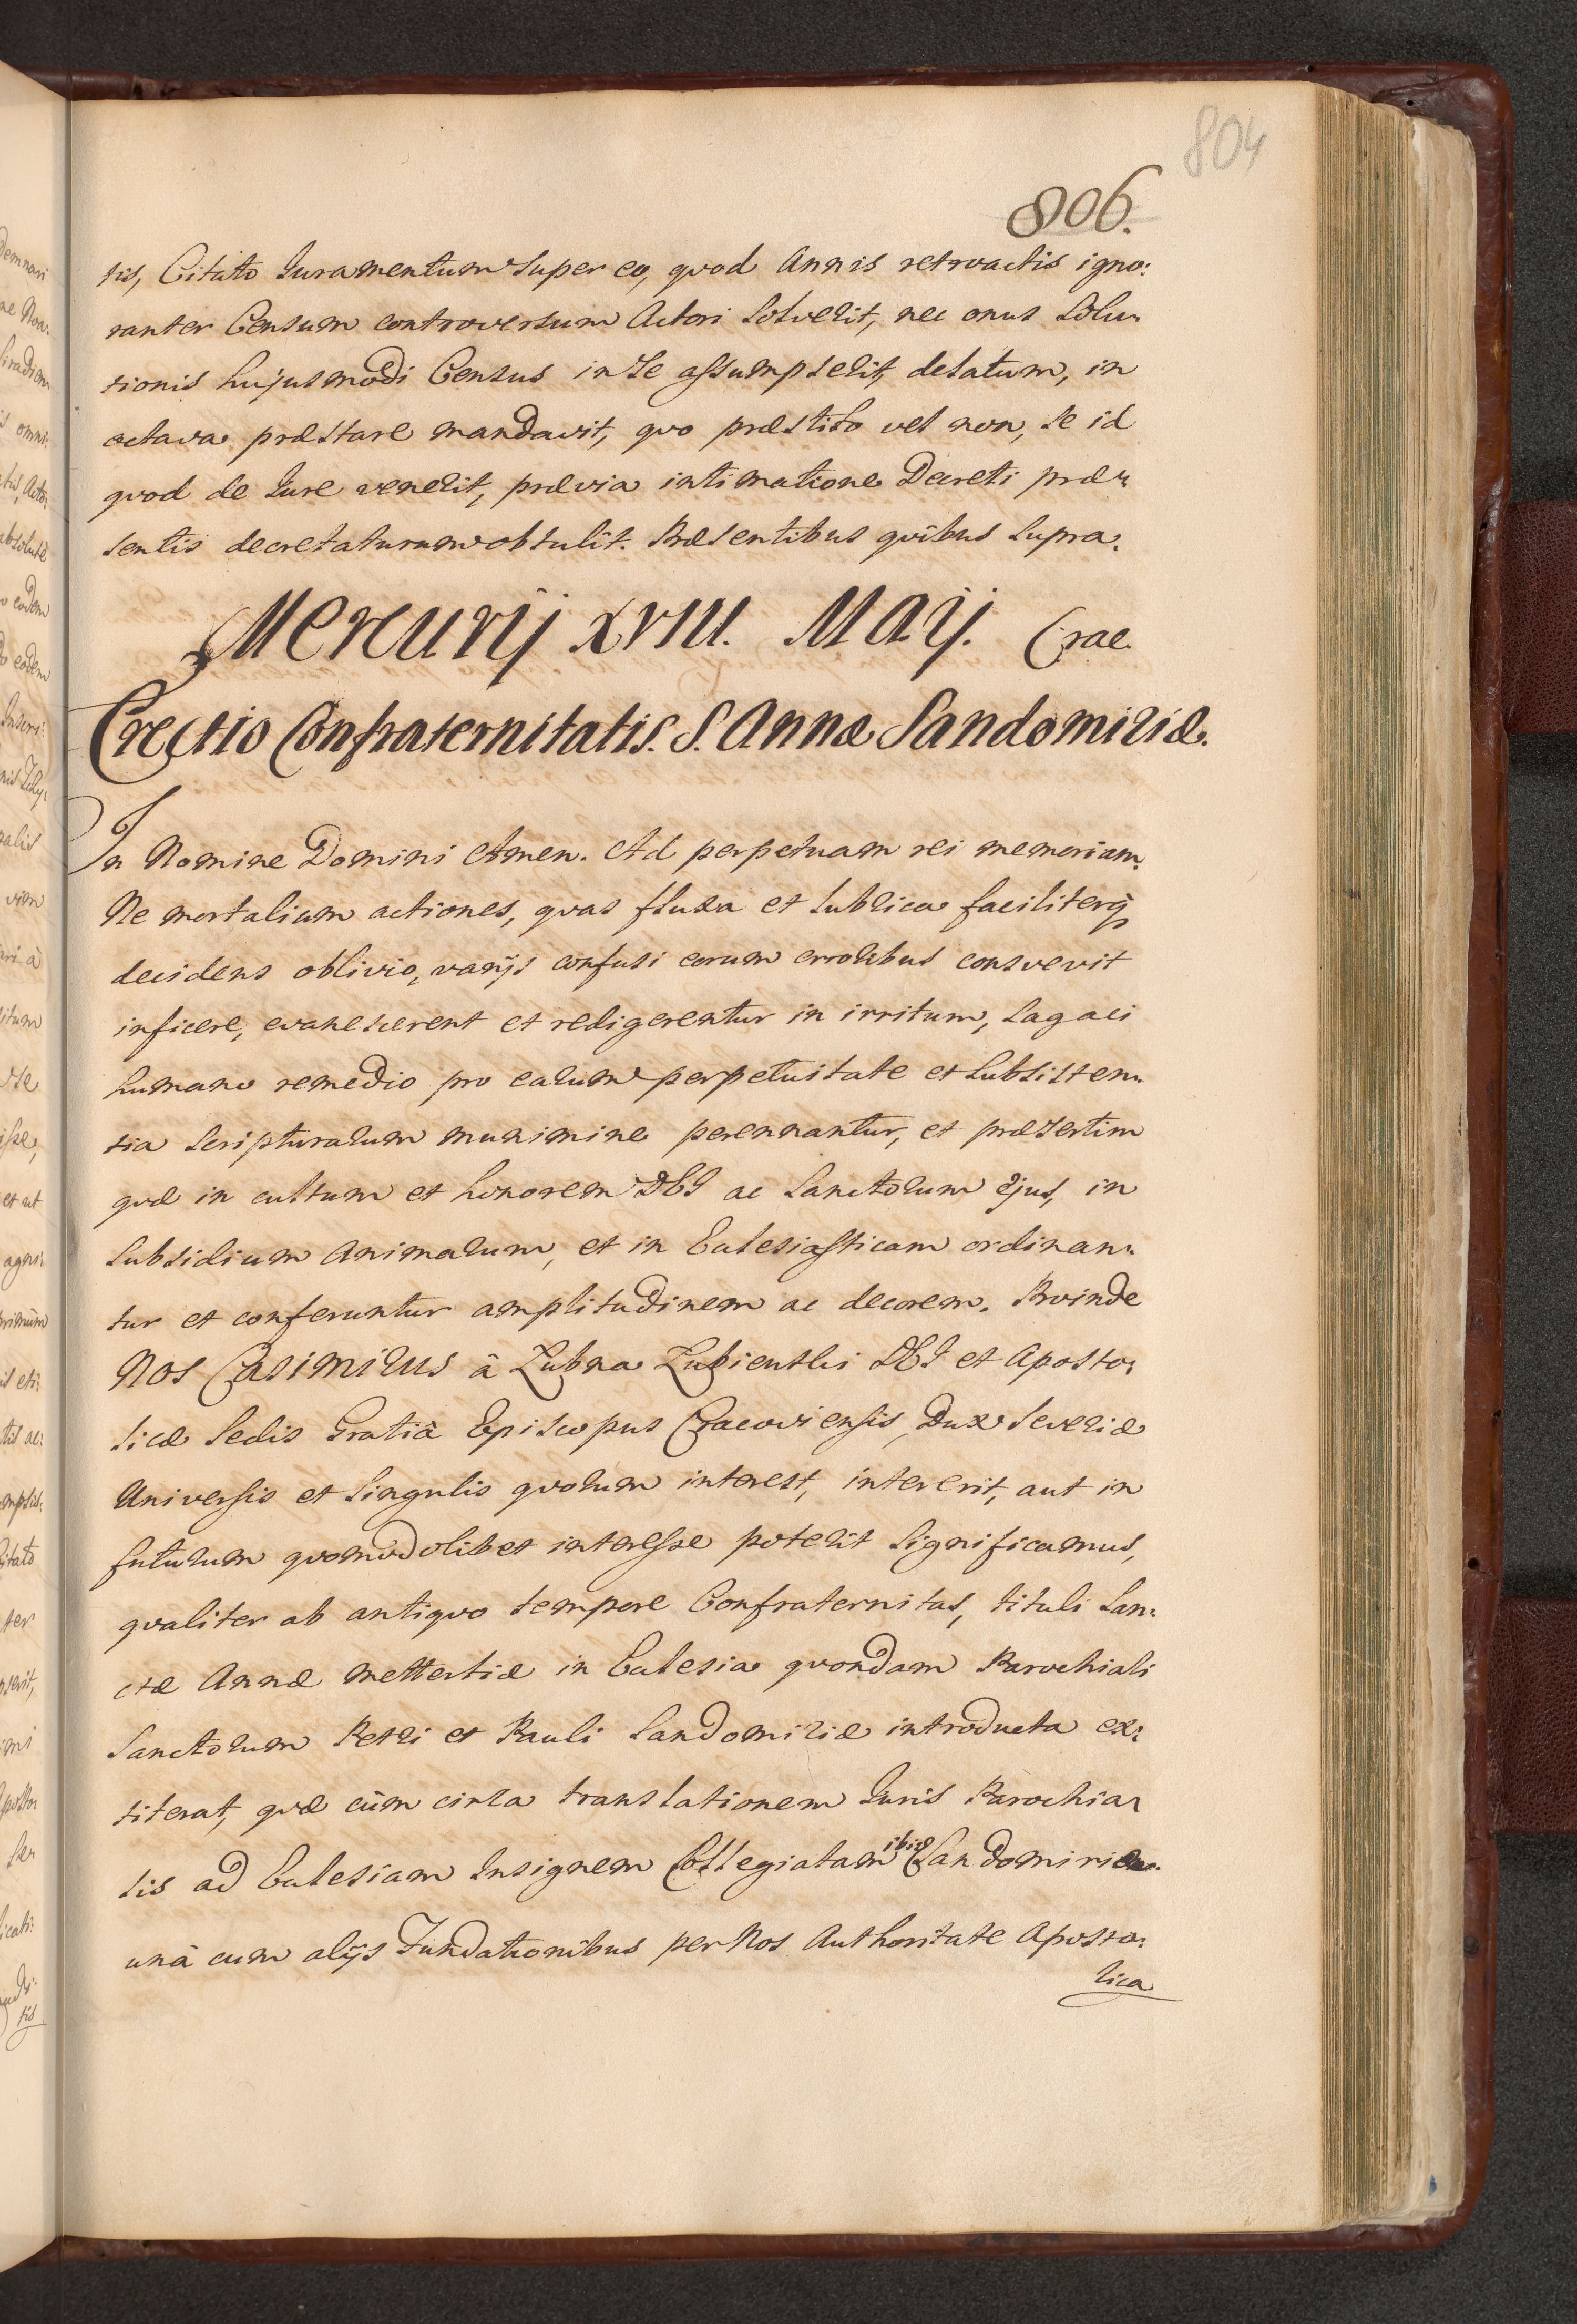 804
806.
tis, Citato Juramentum super eo, quod Annis retroactis igno:
ranter Censum controversum Actori solverit, nec onus solu:
tionis hujusmodi Census in se assumpserit, delatum, in
octava præstare mandavit, quo præstito vel non, se id
quod de Jure venerit, prævia intimatione Decreti præ:
sentis decretaturum obtulit. Præsentibus quibus supra.
Mercurij XVIII. Maij. Crac.
Erectio Confraternitatis. S. Annæ Sandomiriæ.
In Nomine Domini Amen. Ad perpetuam rei memoriam.
Ne mortalium actiones, quas fluxa et lubrica faciliterq
decidens oblivio, varijs confusi eorum erroribus consvevit
inficere, evanescerent et redigerentur in irritum, sagaci
humano remedio pro earum perpetuitate et subsisten:
tia scripturarum munimine perennantur, et præsertim
quæ in cultum et honorem DEI ac Sanctorum ejus, in
subsidium Animarum, et in Eclesiasticam ordinan:
tur et conferuntur amplitudinem ac decorem. Proinde
Nos Casimirus â Łubna Łubienski DEI et Aposto:
licæ Sedis Gratiâ Episcopus Cracoviensis, Dux Severiæ
Universis et Singulis quorum interest, intererit, aut in
futurum quomodolibet interesse poterit significamus,
qualiter ab antiquo tempore Confraternitas, tituli San:
ctæ Annæ mettertiæ in Eclesia quondam Parochiali
Sanctorum Petri et Pauli Sandomiriæ introducta ex:
titerat, quæ cùm circa translationem Juris Parochia:
lis ad Eclesiam Insignem Collegiatam ibid Sandomirien.
unâ cum alijs Fundationibus per Nos Authoritate Aposto:
lica